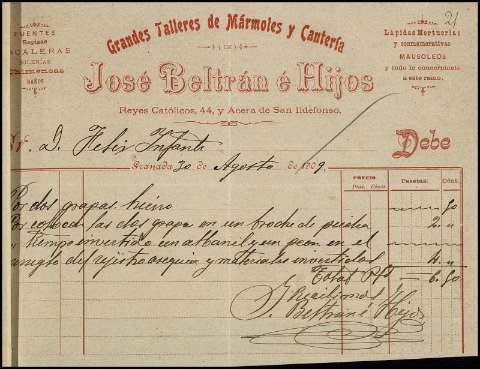 21
Grandes Talleres de Mármoles y Cantería
FUENTES
ESCALERAS
José Beltrán é Hijos
Lápidas Mortuorias
y conmemorativas
MAUSOLEOS
y todo lo concerniente
á este ramo.
Reyes Católicos, 44, y Acera de San Ildefonso.
Sr. D. Felix Infante
Debe
Granada 30 de Agosto de 1909.
PRECIO
Pesetas. Cénts.
Por dos grapas hierro 50
Por colocar las dos grapa en un broche de piedra 2 "
" tiempo invertido con albañil y un peon en el
arreglo del registro asequia y materiales invertidos 4 "
Total Pts 6 50
Recibimos
J. Beltrán é Hijos